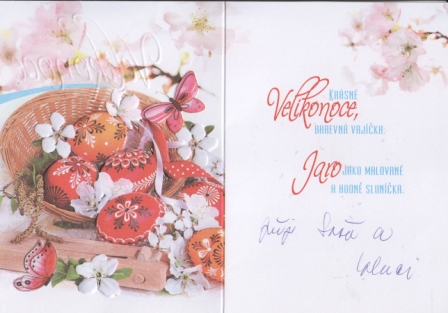 Krásné
Velikonoce,
barevná vajíčka.
Jaro jako malované
a hodně sluníčka.
a